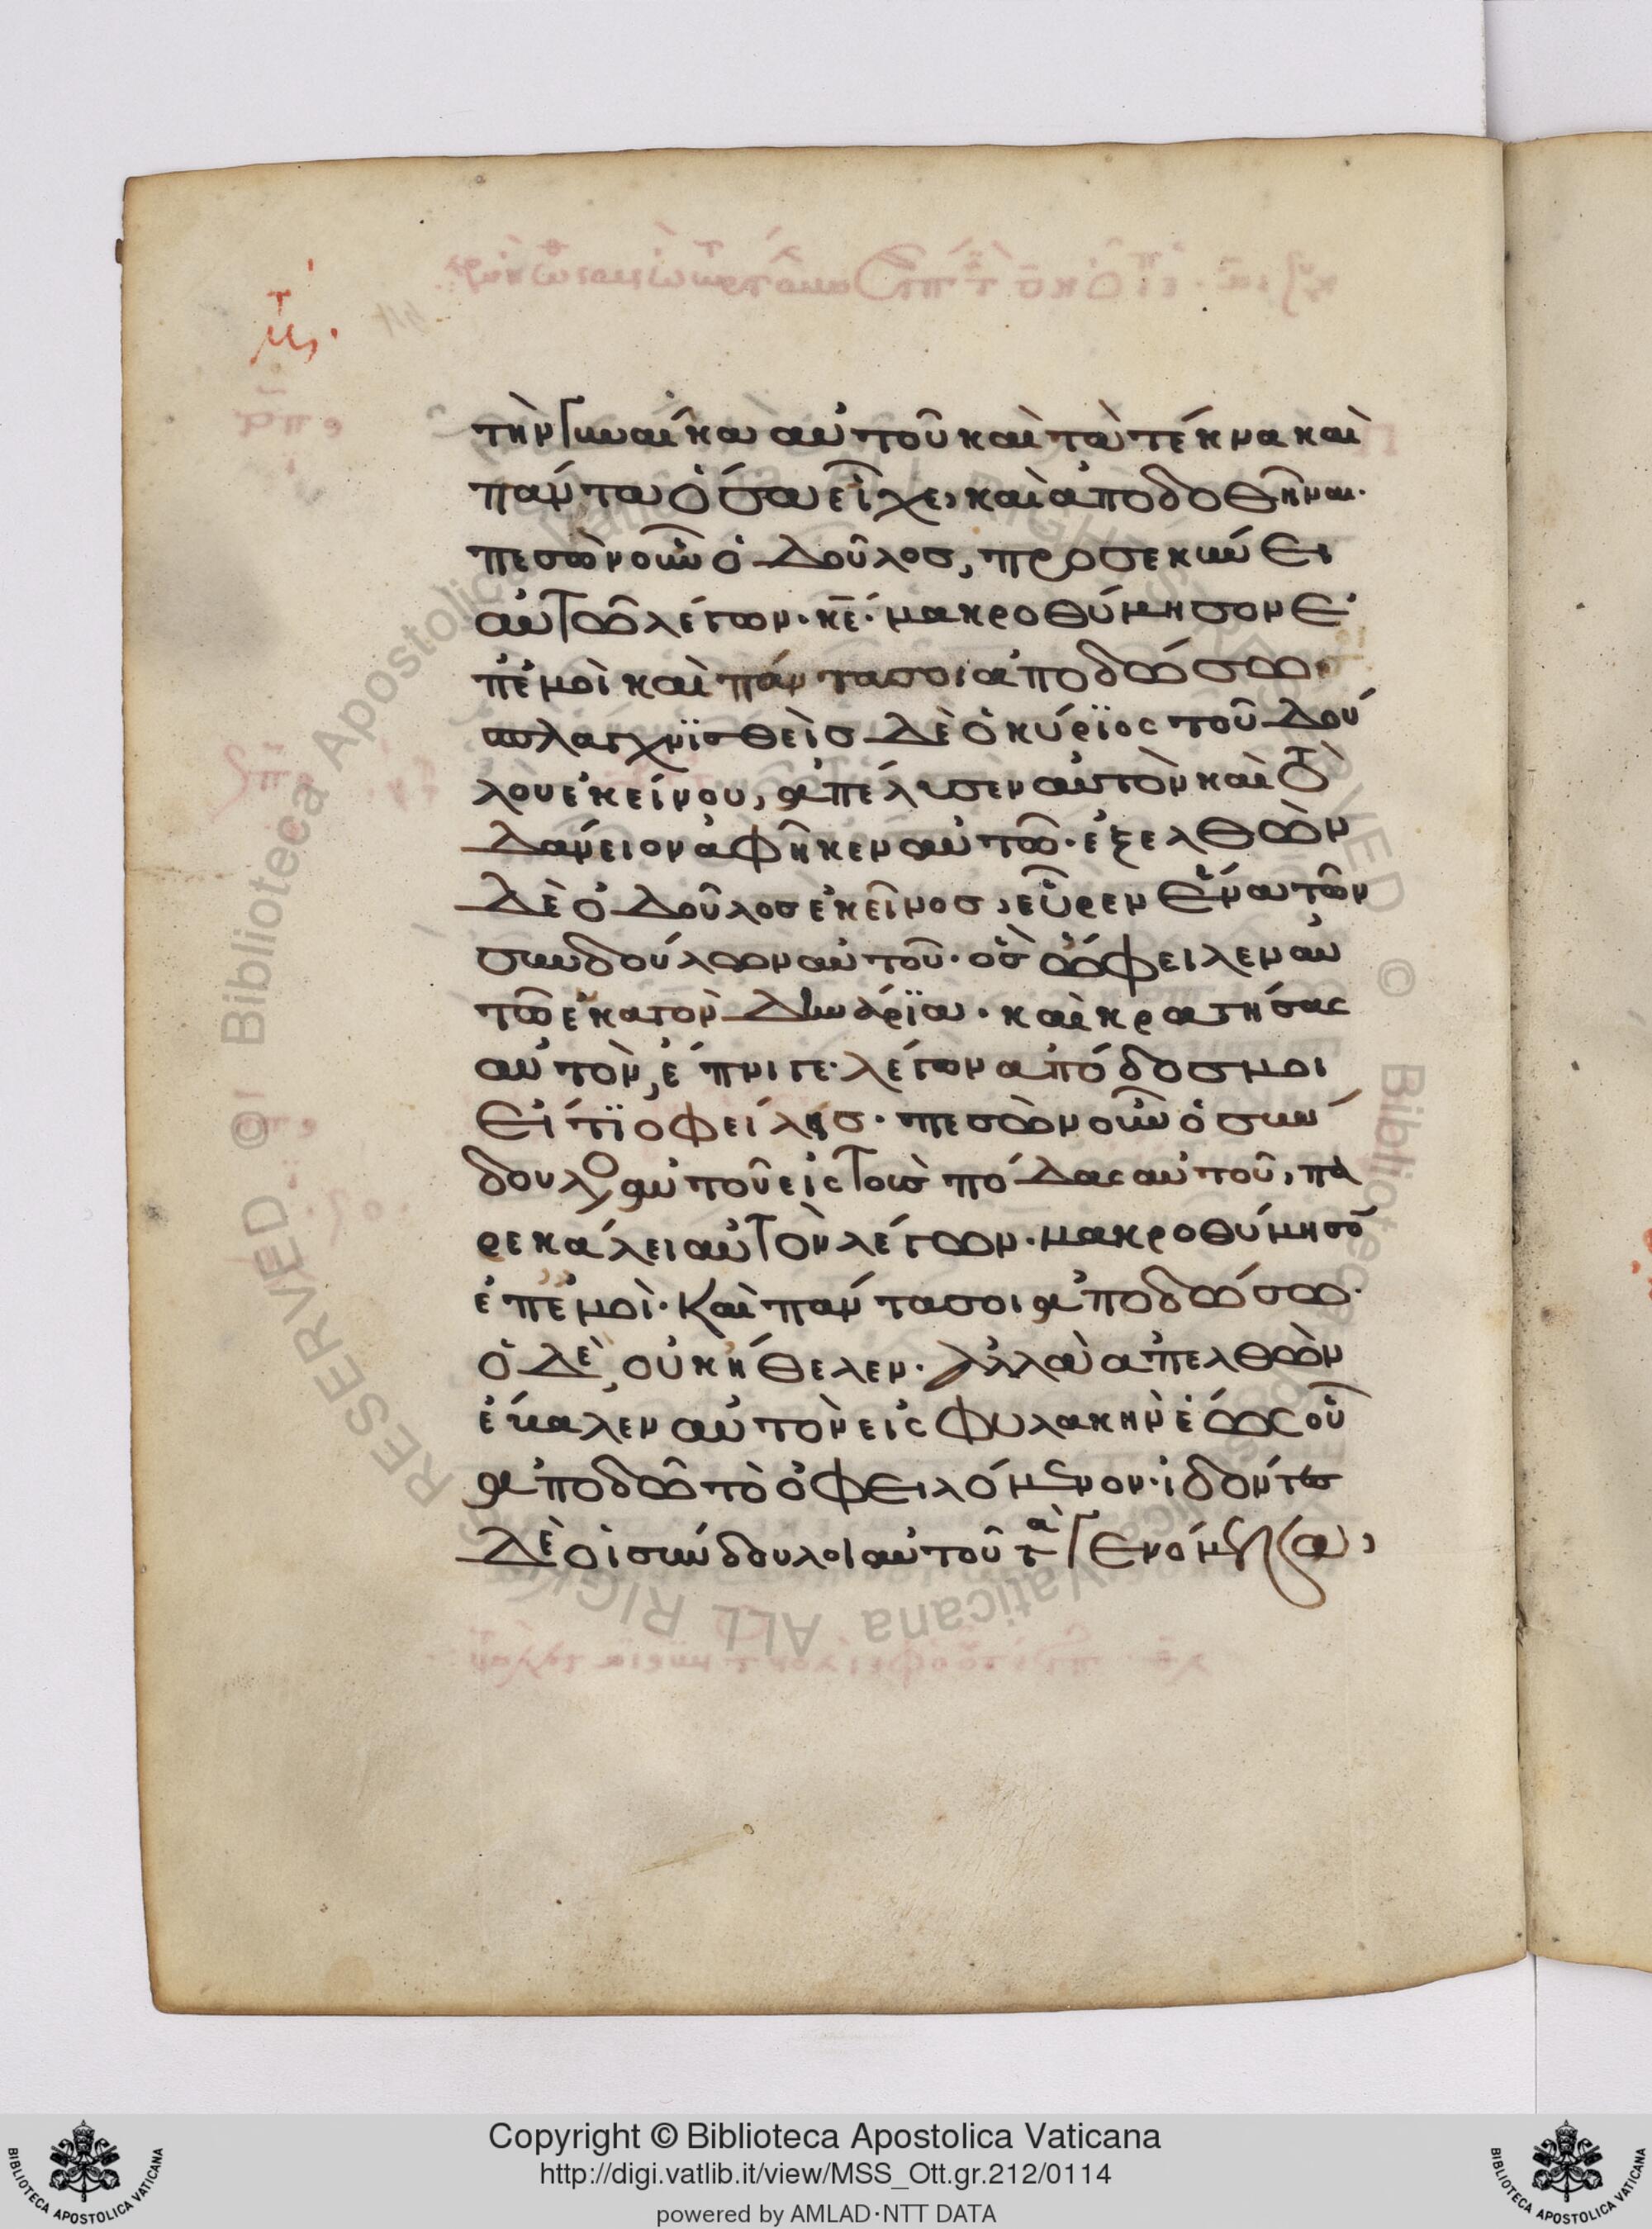 τὴν γυναῖκα αὐτοῦ καὶ τὰ τέκνα καὶ
πάντα ὅσα εἶχε, καὶ ἀποδοθῆναι·
πεσὼν οὖν ὁ δοῦλοσ, προσεκύνει
αὐτῶ λέγων· κ̅ε̅· μακροθύμησον ἐ
π' ἐμοὶ καὶ πάντα σοι ἀποδώσω·
σπλαγχνϊσθεὶσ δὲ ὁ κύρϊος τοῦ δού
λου ἐκείνου, ἀπέλυσεν αὐτὸν καὶ τὸ
δάνειον ἀφῆκεν αὐτῶ· ἐξελθὼν
δὲ ὁ δοῦλοσ ἐκεῖνοσ, εὗρεν ἕνα τῶν
συνδούλων αὐτοῦ· ὃσ ὤφειλεν αὐ
τῶ ἑκατὸν δηνάρϊα· καὶ κρατήσας
αὐτὸν, ἔπνιγε· λέγων ἀπόδοσ μοι
εἴ τϊ ὀφείλεισ· πεσὼν οὖν ὁ σύν
δουλος αὐτοῦ εἰς τοὺσ πόδας αὐτοῦ, πα
ρεκάλει αὐτὸν λέγων· μακροθύμησο̅
ἐπ' ἐμοὶ· καὶ πάντα σοι ἀποδώσω·
ὁ δὲ, οὐκ ἤθελεν· ἀλλὰ ἀπελθὼν
ἔβαλεν αὐτὸν εἰς φυλακὴν ἕως οὗ
ἀποδῶ τὸ ὀφειλόμενον· ἰδόντεσ
δὲ οἱ σύνδουλοι αὐτοῦ τὰ γενόμενα,
Copyright © Biblioteca Apostolica Vaticana
http://digi.vatlib.it/view/MSS_Ott.gr.212/0114
powered by AMLAD·NTT DATA
BIBLIOTECA APOSTOLICA VATICANA
BIBLIOTECA APOSTOLICA VATICANA